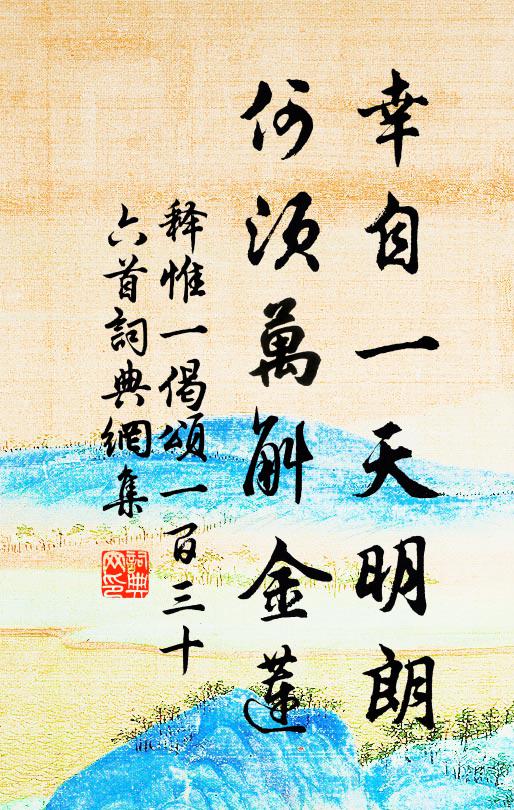 幸自一天明朗
何须萬斛金蓮
释惟一偈頌一百三十
六首詞典網集
詞典
网印